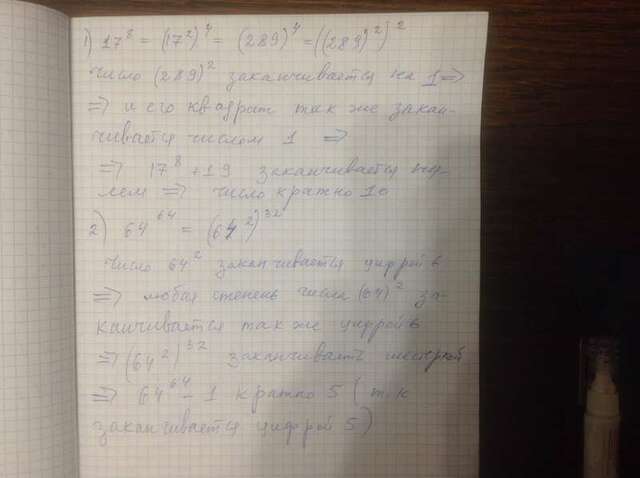 1) 17⁸ = (17²)⁴ = (289)⁴ = ((289)²)²
число (289)² заканчивается на 1 ⇒
⇒ и его квадрат так же закан-
чивается числом 1 ⇒
⇒ 17⁸ + 19 заканчивается ну-
лем ⇒ число кратно 10
2) 64⁶⁴ = (64²)³²
число 64² заканчивается цифрой 6
⇒ любая степень числа (64)² за-
канчивается так же цифрой 6
⇒ (64²)³² заканчивает шестеркой
⇒ 64⁶⁴ - 1 кратно 5 (т.к
заканчивается цифрой 5)